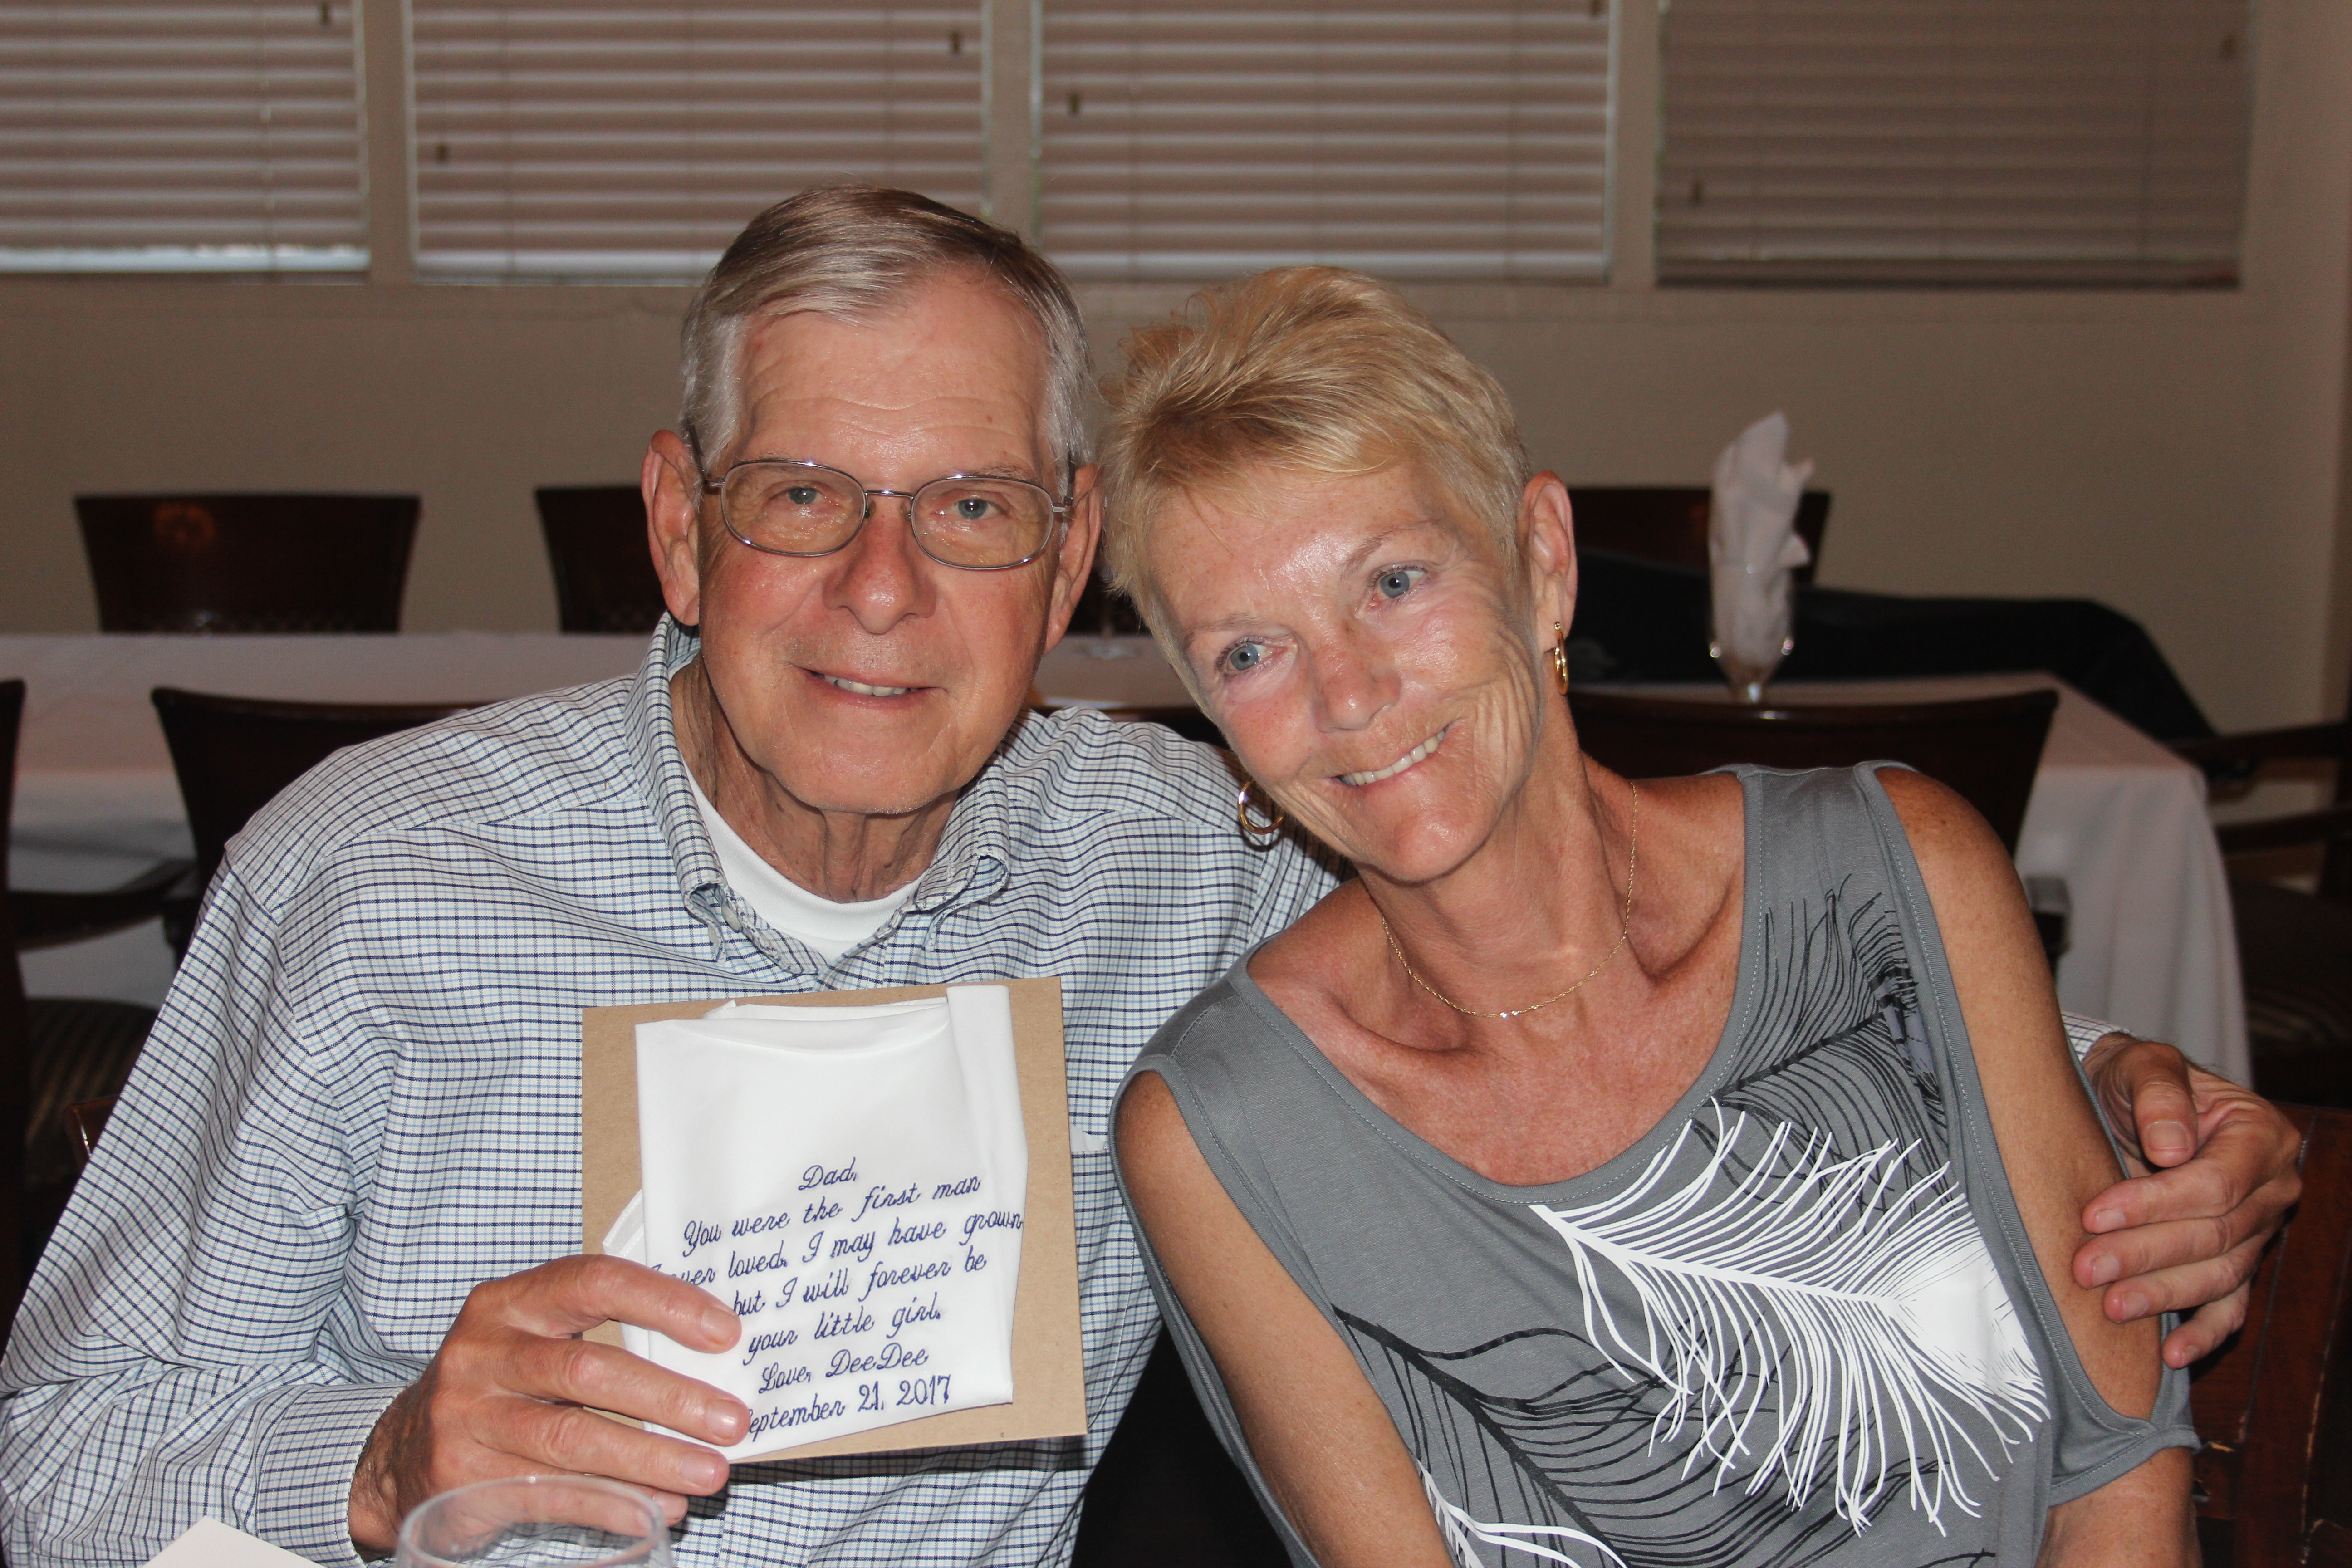 Dad,
You were the first man
ever loved. I may have grown
but I will forever be
your little girl.
Love, DeeDee
September 21, 2017